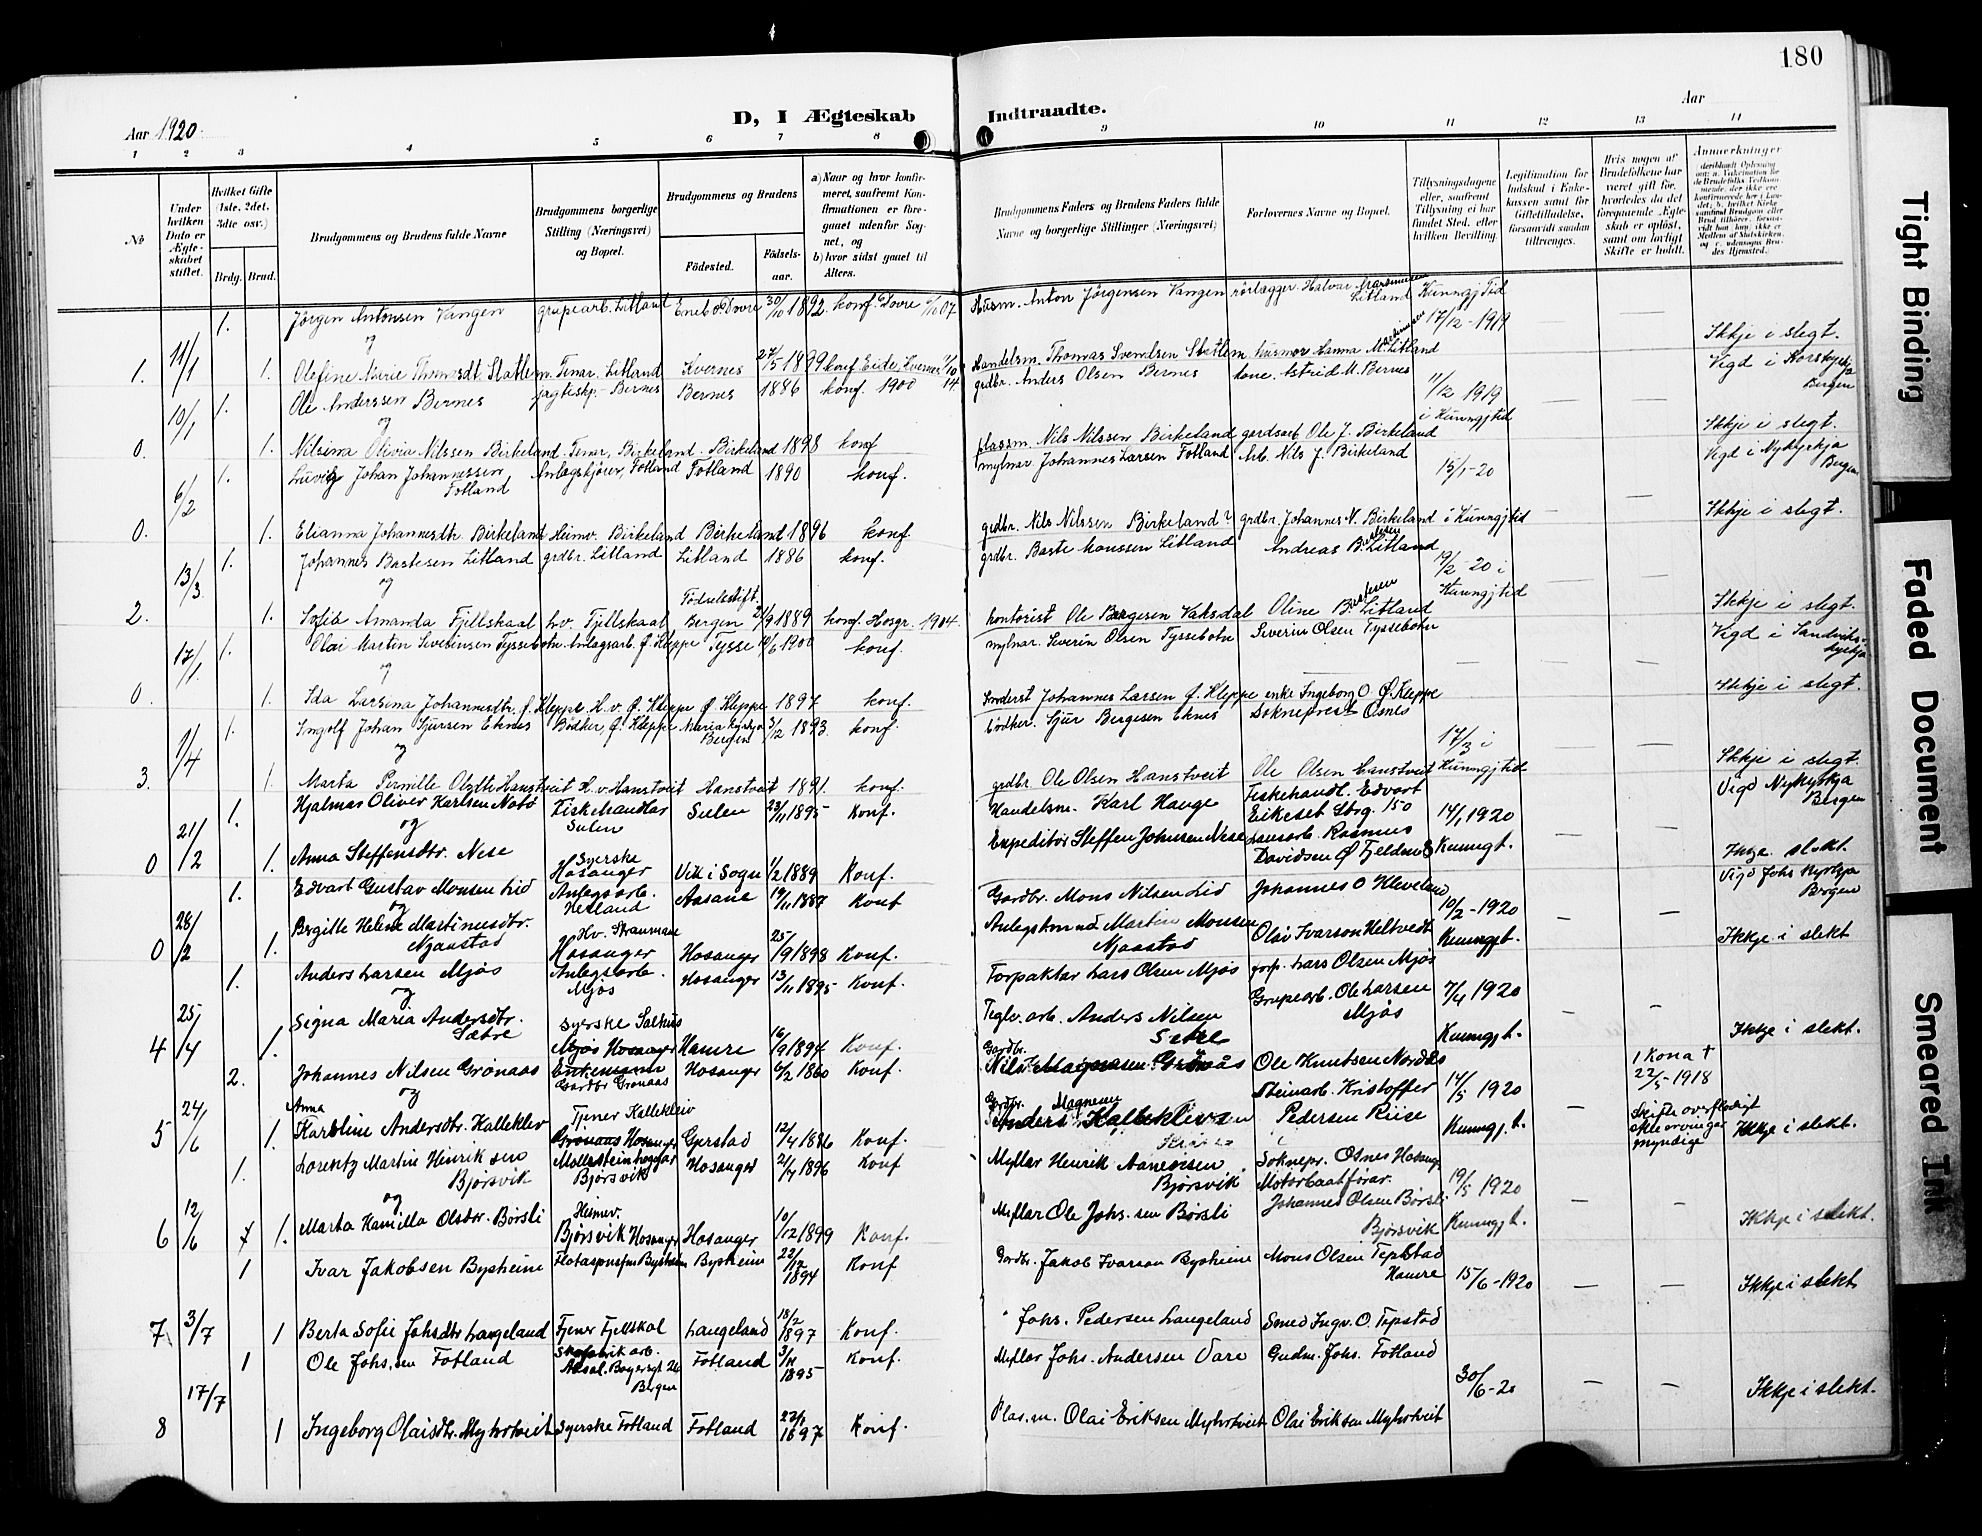 180
Aar 1920.
D, I Ægteskab Indtraadte.
Aar
1 2 3 4 5 6 7 8 9 10 11 12 13 14
No
Under hvilken Dato er Ægteskabet stiftet.
Hvilket Gifte (1ste, 2det, 3die osv.)
Brdg. Brud.
Brudgommens og Brudens fulde Navne
Brudgommens borgerlige Stilling (Næringsvei) og Bopæl.
Brudgommens og Brudens
Fødested.
Fødselsaar.
a) Naar og hvor konfirmeret, saafremt Konfirmationen er foregaaet udenfor Sognet, og
b) hvor sidst gaaet til Alters.
Brudgommens Faders og Brudens Faders fulde Navne og borgerlige Stillinger (Næringsvei)
Forlovernes Navne og Bopæl.
Tillysningsdagene eller, saafremt Tillysning ei har fundet Sted, efter hvilken Bevilling.
Legitimation for Indskud i Enkekassen samt for Giftetilladelse, forsaavidt saadan tiltrænges.
Hvis nogen af Brudefolkene har været gift før, hvorledes da det foregaaende Ægteskab er opløst, samt om lovligt Skifte er holdt.
Anmærkninger
1. Jørgen Antonsen Vangen grupearb. Litland Dovre 30/10 1892. konf. Dovre 07 Husm. Anton Jørgensen Vangen rørlægger Halvar Litland Kunngj Tid
og 17/12 - 1919 Ikkje i slegt.
1. 11/1 1. Olefine Marie Thomasdt. Statlem Tenar. Litland Kvernes 27/5 1899 konf Eide, Kvernes 14 Handelsm. Thomas Svendsen Statlem husmor Hanna M. Litland Vigd i Korskyrkja Bergen
10/1 1. Ole Anderssen Bernes jagtiskp. Bernes Bernes 1886 konf. 1900 grdbr. Anders Olsen Bernes kone. Astrid M. Bernes 11/12 1919
og i Kunngj tid Ikkje i slegt.
0. 1. Nilsina Olivia Nilssen Birkeland Tenar, Birkeland. Birkeland 1898 konf plassm. Nils Nilssen Birkeland gardsarb Ole J. Birkeland Vigd i Nykyrkja Bergen
6/2 1. Luvig Johan Johannessen Fotland Anlægskjører, Fotland Fotland 1890 konf. mylnar Johannes Larsen Fotland Arb. Nils J. Birkeland 15/1-20
Ikkje i slegt.
0. 1. Elianna Johannesdtr. Birkeland Heimv. Birkeland Birkeland 1896 konf. grdbr. Nils Nilssen Birkeland? grdbr. Johannes N. Birkeland i Kunngj tid
13/3 1. Johannes Bastesen Litland grdbr. Litland Litland 1886 konf. grdbr. Baste Monssen Litland Andreas B. Litland 19/2 - 20 i
og Fødselsstift. Kunngj tid Ikkje i slegt.
2. 1. Sofie Amanda Fjellskaal h.v. Fjellskaal Bergen 21/9 1889 konf. Hosgr. 1904 kontorist Ole Børgesen Vaksdal Oline B. Litland
17/1 1. Olai Martin Severinsen Tyssebotn Anlægsarb. Ø. Kleppe Tysse 1900 konf. mylnar. Severin Olsen Tyssebotn Severin Olsen Tyssebotn Vigd i Sandvikskyrkja
og Ikkje i slegt.
0. 1. Ida Larsina Johannesdtr. Ø. Kleppe H.v. Ø. Kleppe Ø. Kleppe 1897 konf. Johannes Larsen Ø. Kleppe enke Ingeborg O Ø. Kleppe
1/4 1. Ingolf Johan Sjursen Eknes Bødker, Ø. Kleppe Maria kyrkja Bergen 3/12 1893. konf. bødker. Sjur Bergesen Eknes Sokneprest Osnes 17/3 i
og Ikkje i slegt.
3. 1. Marta Pernille Olsdtr Hanstveit H.v. Hanstveit Hanstveit 1891. konf. grdbr Ole Olsen Hanstveit Ole Olsen Hanstveit Kunngj tid
1. Hjalmar Oliver Karlsen Nobø Fiskehandlar Sulen Sulen 23/11 1895 Konf. Handelsm. Karl Hauge Fiskehandl. Edvart Eikeset Strg. 150 14/1 1920 Vigd Nykyrkja Bergen
og
0 21/2 1. Anna Steffensdtr. Nese Syerske Hosanger Vik i Sogn 1/2 1889 Konf. Expeditør Steffen Johnsen Nese Rasmus Davidsen Ø Fjeldm Kunngt. Ikkje slekt.
1. Edvart Gustav Monsen Lid Anlegsarb. Hetland Aasane 19/11 1887 Konf Gardbr. Mons Nilsen Lid Johannes O Kleveland 10/2 - 1920 Vigd Johs kyrkja Bergen
og
0 28/2 1. Bergitte Helene Martinusdtr. Njaastad Hv. Straumane Hosanger Hosanger 25/9 1898 Konf. Martin Monsen Njaastad Olai Ivarson Heltvedt Kunngj t. Ikkje i slekt
1. Anders Larsen Mjøs Anlegsarb. Mjøs Hosanger 13/11 1895 Konf. Forpaktar Lars Olsen Mjøs forp. Lars Olsen Mjøs
og Grupearb. Ole Larsen Mjøs 7/4 1920
4 25/4 1. Signa Maria Andersdtr. Sætre Syerske Mjøs Hosanger Hamre 16/9 1894 Konf. Teglv. arb. Anders Nilsen Setre Kunngj t. Ikkje i slekt.
2. Johannes Nilsen Grønaas Enkemann Gardbr Grønaas Hosanger 6/2 1860 Konf. Gardbr. Nils Magnusen Grønaas Ole Knutsen Nordås 1 Kona † 22/5-1918
og Steinarb. Kristoffer Pedersen Riise 14/5 1920
5 24/6 1. Anna Karoline Andersdtr. Halleklev Tjener Kalleklev Grønaas Hosanger Gjerstad 12/4 1886 Konf. Gardbr. Anders Magnesen Halleklev Kunngj. t. Skifte overflødigt alle arvingar myndige Ikkje i slekt.
1. Lorentz Martin Henriksen Bjørsvik Møllesteinhoggar Bjørsvik Hosanger 2/4 1896 Konf Myllar Henrik Bjørsvik Soknepr. Osnes Hosanger
og Motorbaatførar. 19/5 1920
6 12/6 1. Marta Kamilla Olsdtr. Børsli Heimev. Bjørsvik Hosanger Hosanger 10/12 1899 Konf. Myllar Ole Johs.sen Børsli Johannes Olsen Børsli Bjørsvik Kunngj t. Ikkje i slekt.
1 Ivar Jakobsen Bysheim Bysheim 22/12 1894 Konf Gardbr. Jakob Ivarson Bysheim Mons Olsen Tepstad Hamre 15/6-1920 Ikkje i slekt
7 3/7 1 Berta Sofie Johsdtr Langeland Tjener Fjellskal Langeland 18/2 1897 Konf. Johs. Pedersen Langeland Smed Ingv. O. Tepstad
1 Ole Johs.sen Fotland Skofabrik arb. Bergen Fotland 3/11 1895 Konf. Myllar Johs. Andersen Vare Gudm. Johs. Fotland
17/7 30/6-20 Ikkje i slekt.
8 1 Ingeborg Olaisdtr. Myhrtveit Syerske Fotland Fotland 22/1 1897 Konf. Plas.m. Olai Eriksen Myhrtveit Olai Eriksen Myhrtveit
Tight Binding
Faded Document
Smeared Ink